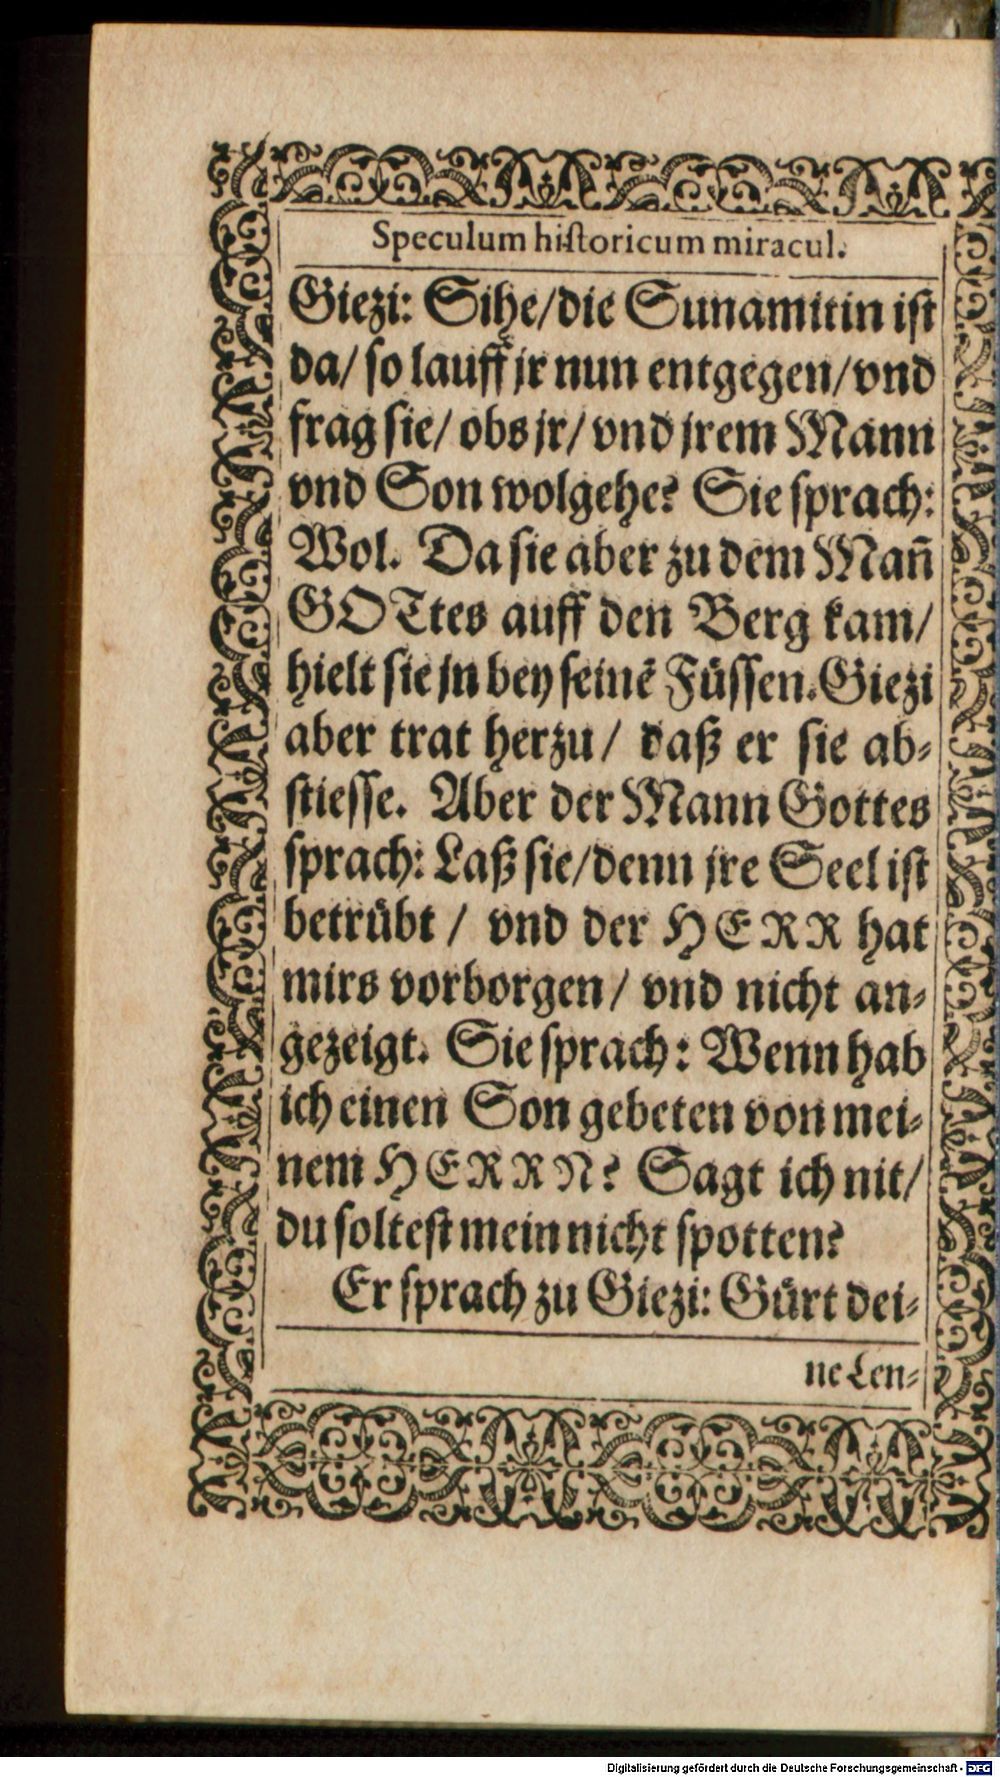 Speculum historicum miracul.
Giezi: Sihe/die Sunamitin ist
da/ so lauff jr nun entgegen/vnd
frag sie/ obs jr/ vnd jrem Mann
vnd Son wolgehe? Sie sprach:
Wol. Da sie aber zu dem Mañ
GOTtes auff den Berg kam/
hielt sie jn bey seinē Füssen. Giezi
aber trat herzu/ daß er sie ab-
stiesse. Aber der Mann Gottes
sprach: Laß sie/denn jre Seel ist
betrübt / vnd der HERR hat
mirs vorborgen/ vnd nicht an-
gezeigt. Sie sprach: Wenn hab
ich einen Son gebeten von mei-
nem HERRN? Sagt ich nit/
du soltest mein nicht spotten?
Er sprach zu Giezi: Gürt dei-
ne Len-
Digitalisierung gefördert durch die Deutsche Forschungsgemeinschaft - DFG